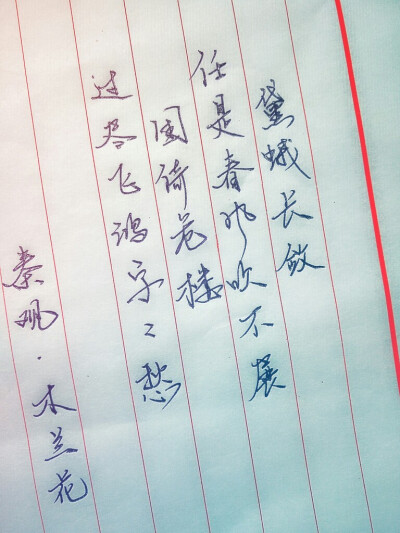 黛蛾长敛
任是春风吹不展
困倚危楼
过尽飞鸿字〻愁
秦观·木兰花